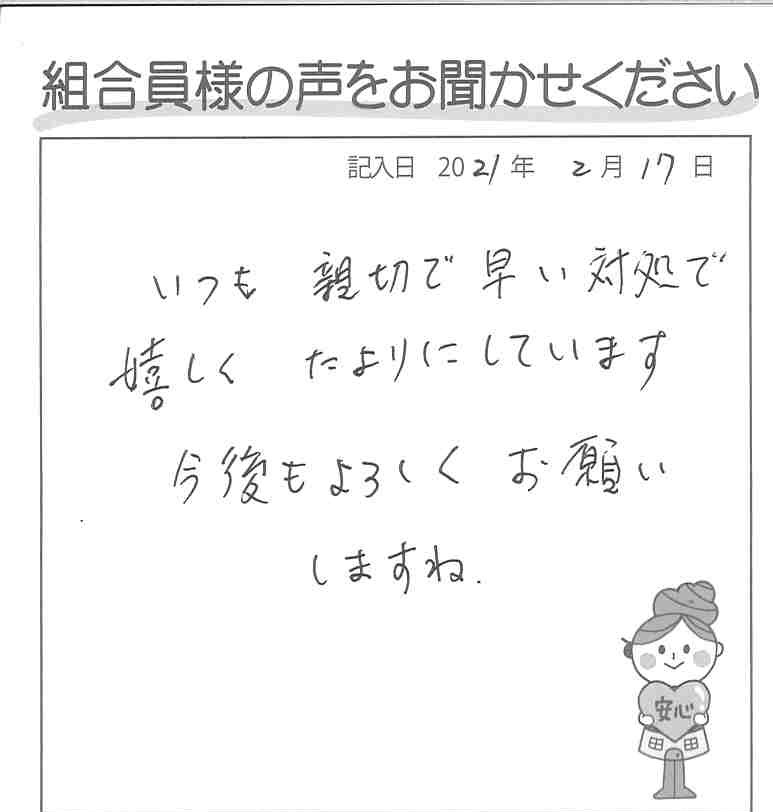 組合員様の声をお聞かせください
記入日 2021年 2月17日
いつも 親切で 早い 対処で
嬉しく たよりにしています
今後もよろしく お願い
しますね.
安心